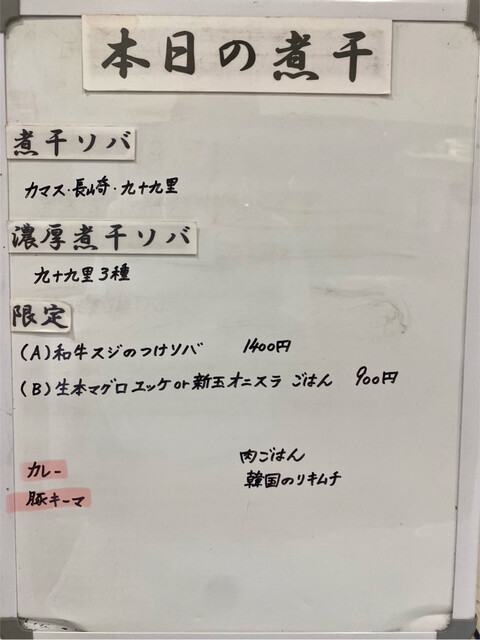 本日の煮干
煮干ソバ
カマス・長崎・九十九里
濃厚煮干ソバ
九十九里3種
限定
(A)和牛スジのつけソバ 1400円
(B)生本マグロユッケor新玉オニスラ ごはん 900円
カレー 肉ごはん
豚キーマ 韓国のりキムチ